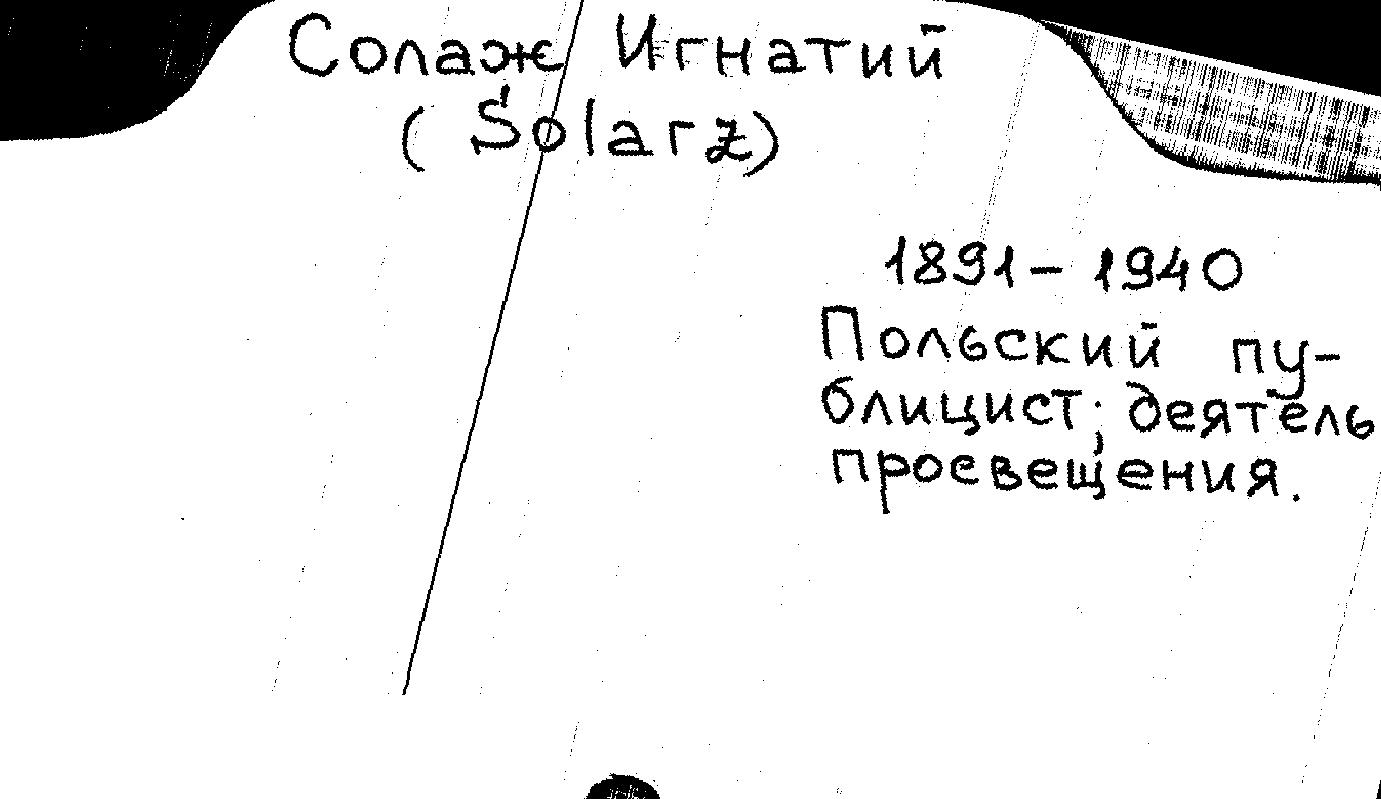 Солаж Игнатий
( Solarz)
1891 – 1940
Польский пу-
блицист; деятель
просвещения.